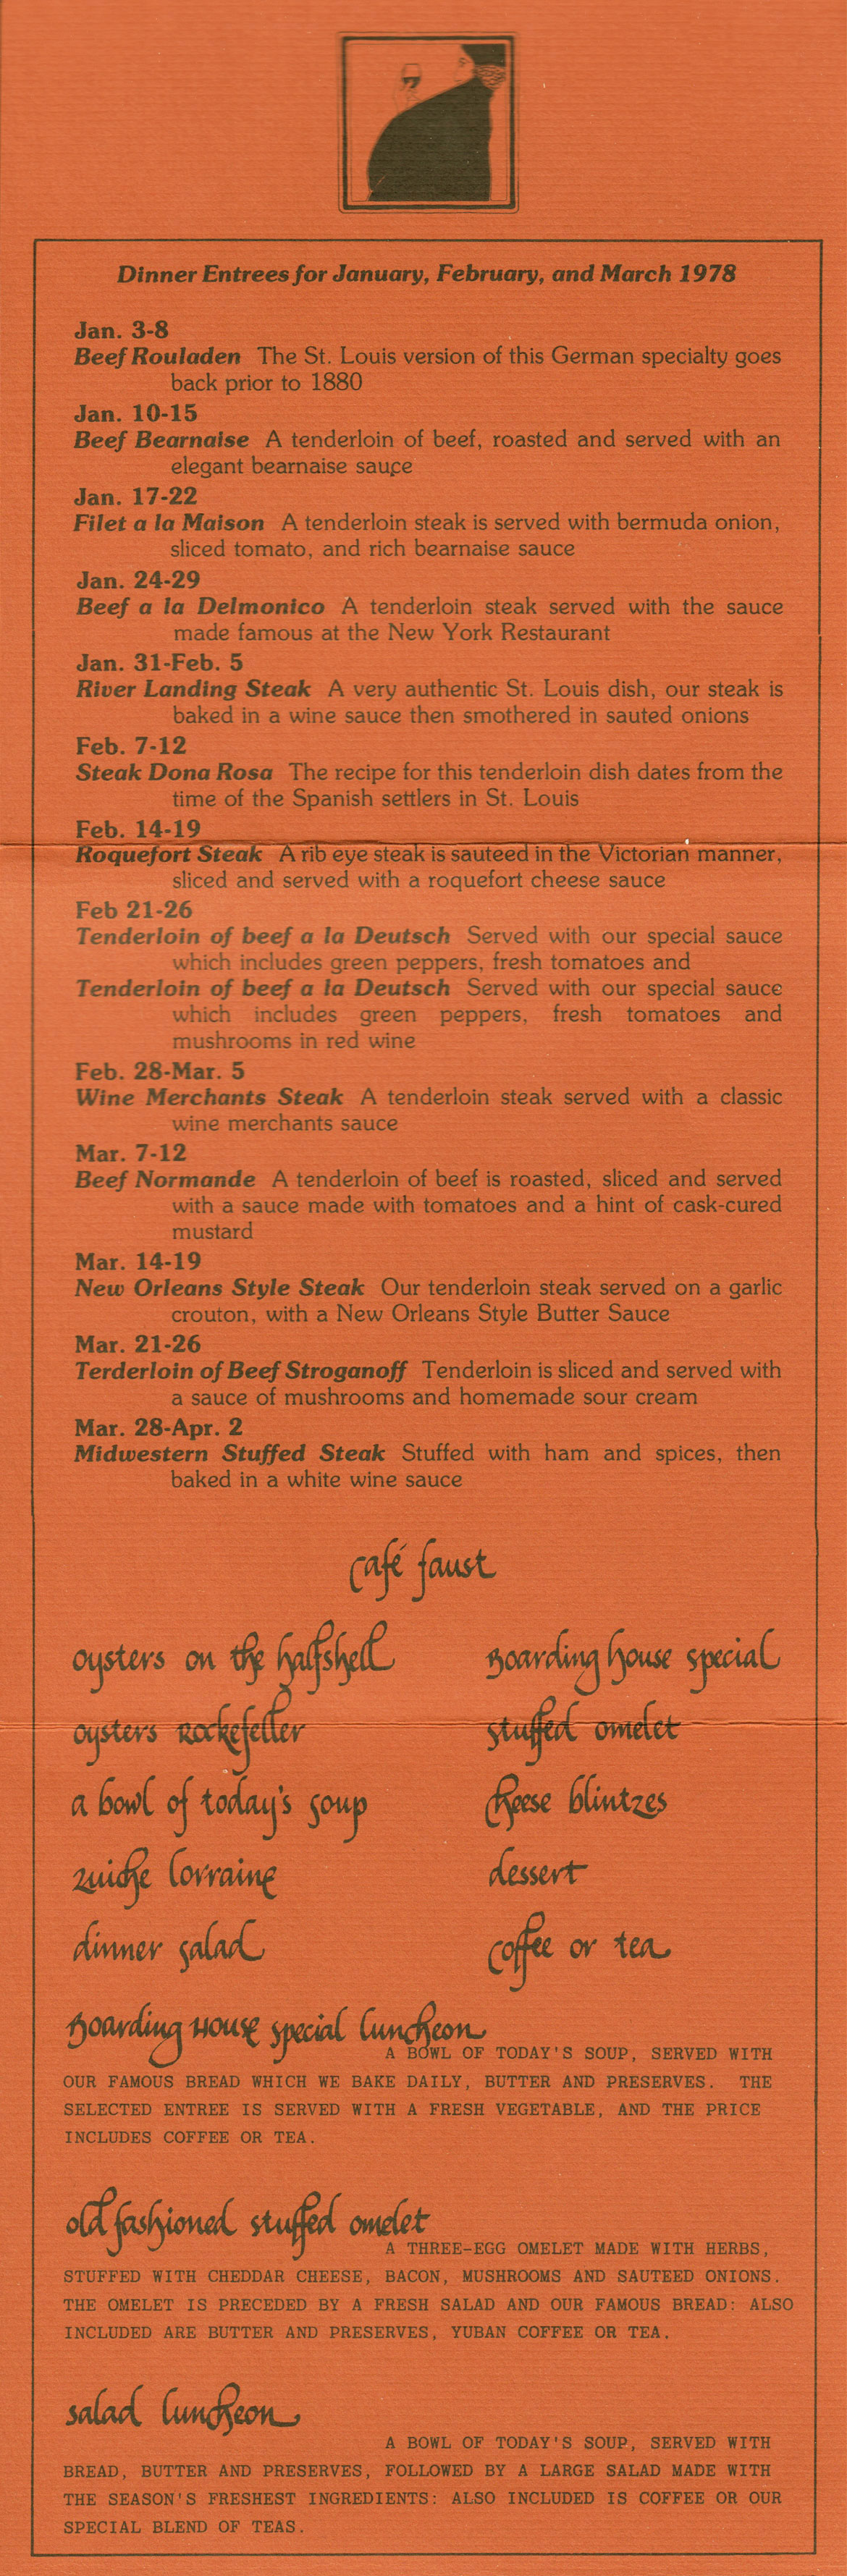 Dinner Entrees for January, February, and March 1978
Jan. 3-8
Beef Rouladen The St. Louis version of this German specialty goes
back prior to 1880
Jan. 10-15
Beef Bearnaise A tenderloin of beef, roasted and served with an
elegant bearnaise sauce
Jan. 17-22
Filet a la Maison A tenderloin steak is served with bermuda onion,
sliced tomato, and rich bearnaise sauce
Jan. 24-29
Beef a la Delmonico A tenderloin steak served with the sauce
made famous at the New York Restaurant
Jan. 31-Feb. 5
River Landing Steak A very authentic St. Louis dish, our steak is
baked in a wine sauce then smothered in sauted onions
Feb. 7-12
Steak Dona Rosa The recipe for this tenderloin dish dates from the
time of the Spanish settlers in St. Louis
Feb. 14-19
Roquefort Steak A rib eye steak is sauteed in the Victorian manner,
sliced and served with a roquefort cheese sauce
Feb 21-26
Tenderloin of beef a la Deutsch Served with our special sauce
which includes green peppers, fresh tomatoes and
Tenderloin of beef a la Deutsch Served with our special sauce
which includes green peppers, fresh tomatoes and
mushrooms in red wine
Feb. 28-Mar. 5
Wine Merchants Steak A tenderloin steak served with a classic
wine merchants sauce
Mar. 7-12
Beef Normande A tenderloin of beef is roasted, sliced and served
with a sauce made with tomatoes and a hint of cask-cured
mustard
Mar. 14-19
New Orleans Style Steak Our tenderloin steak served on a garlic
crouton, with a New Orleans Style Butter Sauce
Mar. 21-26
Terderloin of Beef Stroganoff Tenderloin is sliced and served with
a sauce of mushrooms and homemade sour cream
Mar. 28-Apr. 2
Midwestern Stuffed Steak Stuffed with ham and spices, then
baked in a white wine sauce
café faust
oysters on the halfshell
oysters Rockefeller
a bowl of today's soup
quiche lorraine
dinner salad
Boarding house special
stuffed omelet
cheese blintzes
dessert
coffee or tea
Boarding House special luncheon
A BOWL OF TODAY'S SOUP, SERVED WITH
OUR FAMOUS BREAD WHICH WE BAKE DAILY, BUTTER AND PRESERVES. THE
SELECTED ENTREE IS SERVED WITH A FRESH VEGETABLE, AND THE PRICE
INCLUDES COFFEE OR TEA.
old fashioned stuffed omelet
A THREE-EGG OMELET MADE WITH HERBS,
STUFFED WITH CHEDDAR CHEESE, BACON, MUSHROOMS AND SAUTEED ONIONS.
THE OMELET IS PRECEDED BY A FRESH SALAD AND OUR FAMOUS BREAD: ALSO
INCLUDED ARE BUTTER AND PRESERVES, YUBAN COFFEE OR TEA.
salad luncheon
A BOWL OF TODAY'S SOUP, SERVED WITH
BREAD, BUTTER AND PRESERVES, FOLLOWED BY A LARGE SALAD MADE WITH
THE SEASON'S FRESHEST INGREDIENTS: ALSO INCLUDED IS COFFEE OR OUR
SPECIAL BLEND OF TEAS.